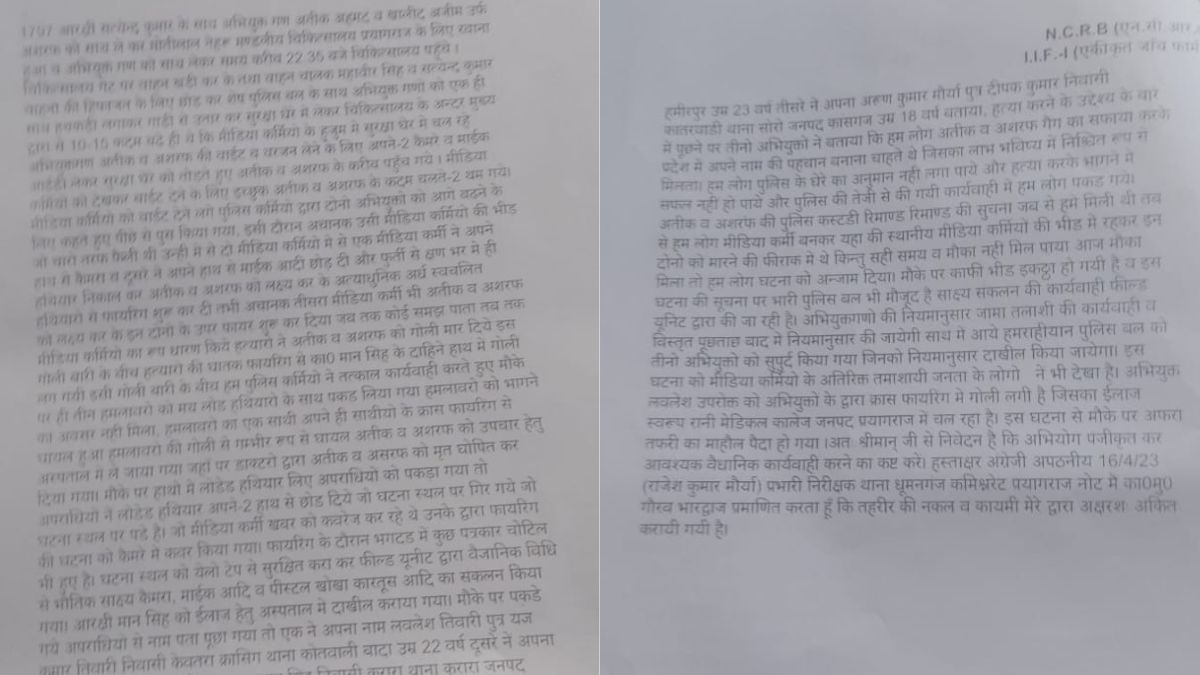 1797 आरक्षी सत्येन्द्र कुमार के साथ अभियुक्त गण अतीक अहमद व खालीद अजीम उर्फ
अशरफ को साथ ले कर मोतीलाल नेहरू मण्डलीय चिकित्सालय प्रयागराज के लिए रवाना
हुआ व अभियुक्त गण को साथ लेकर समय करीब 22.35 बजे चिकित्सालय पहुंचे।
चिकित्सालय गेट पर वाहन खडी कर के तथा वाहन चालक महावीर सिंह व सत्येन्द्र कुमार
वाहनो की हिफाजत के लिए छोड कर शेष पुलिस बल के साथ अभियुक्त गणों को एक ही
साथ हथकडी लगाकर गाडी से उतार कर सुरक्षा घेर मे लेकर चिकित्सालय के अन्दर मुख्य
द्वारा से 10-15 कदम बढे ही थे कि मीडिया कर्मियो के हुजूम मे सुरक्षा घेर मे चल रहे
अभियुक्तगण अतीक व अशरफ की वाईट व वरजन लेने के लिए अपने-2 कैमरे व माईक
आईडी लेकर सुरक्षा घेर को तोडते हुए अतीक व अशरफ के करीव पहुँच गये। मीडिया
कर्मियो को देखकर वाईट देने के लिए इच्छुक अतीक व अशरफ के कदम चलते-2 थम गये।
मीडिया कर्मियो को वाईट देने लगे पुलिस कर्मियो द्वारा दोनो अभियुक्तो को आगे बढने के
लिए कहते हुए पीछे से पुस किया गया, इसी दौरान अचानक उसी मीडिया कर्मियो की भीड
जो चारो तरफ फैली थी उन्ही मे से दो मीडिया कर्मियो मे से एक मीडिया कर्मी ने अपने
हाथ से कैमरा व दूसरे ने अपने हाथ से माईक आदी छोड दी और फुर्ती से क्षण भर मे ही
हथियार निकाल कर अतीक व अशरफ को लक्ष्य कर के अत्याधुनिक अर्ध स्वचलित
हथियारो से फायरिंग शुरू कर दी तभी अचानक तीसरा मीडिया कर्मी भी अतीक व अशरफ
को लक्ष्य कर के इन दोनो के उपर फायर शुरू कर दिया जब तक कोई समझ पाता तव तक
मीडिया कर्मियो का रूप धारण किये हत्यारो ने अतीक व अशरफ को गोली मार दिये इस
गोली बारी के बीच हत्यारो की घातक फायरिंग से का0 मान सिंह के दाहिने हाथ मे गोली
लग गयी इसी गोली बारी के बीच हम पुलिस कर्मियो ने तत्काल कार्यवाही करते हुए मौके
पर ही तीन हमलावरो को मय लोड हथियारो के साथ पकड लिया गया हमलावरो को भागने
का अवसर नही मिला, हमलावरो का एक साथी अपने ही साथीयो के क्रास फायरिंग से
घायल हुआ हमलावरो की गोली से गम्भीर रूप से घायल अतीक व अशरफ को उपचार हेतु
अस्पताल मे ले जाया गया जहां पर डाक्टरो द्वारा अतीक व असरफ को मृत घोषित कर
दिया गया। मौके पर हाथो मे लोडेड हथियार लिए अपराधियो को पकड़ा गया तो
अपराधियो ने लोडेड हथियार अपने-2 हाथ से छोड दिये जो घटना स्थल पर गिर गये जो
घटना स्थल पर पडे है। जो मीडिया कर्मी खबर को कवरेज कर रहे थे उनके द्वारा फायरिंग
की घटना को कैमरे मे कवर किया गया। फायरिंग के दौरान भगदड मे कुछ पत्रकार चोटिल
भी हुए है। घटना स्थल को येलो टेप से सुरक्षित करा कर फील्ड यूनीट द्वारा वैजानिक विधि
से भौतिक साक्ष्य कैमरा, माईक आदि व पीस्टल खोखा कारतूस आदि का सकलन किया
गया। आरक्षी मान सिंह को ईलाज हेतु अस्पताल मे दाखील कराया गया। मौके पर पकडे
गये अपराधियो से नाम पता पूछा गया तो एक ने अपना नाम लवलेश तिवारी पुत्र यज
कुमार तिवारी निवासी केवतरा क्रासिंग थाना कोतवाली बादा उम्र 22 वर्ष दूसरे ने अपना
निवासी करारा थाना करारा जनपद
N.C.R.B (एन.सी.आर
I.I.F.-I (एकीकृत जाँच फार्म
हमीरपुर उम्र 23 वर्ष तीसरे ने अपना अरूण कुमार मौर्या पुत्र दीपक कुमार निवासी
कातरवाडी थाना सोरो जनपद कासगज उम्र 18 वर्ष बताया, हत्या करने के उद्देश्य के बार
में पूछने पर तीनो अभियुक्तो ने बताया कि हम लोग अतीक व अशरफ गैग का सफाया करके
प्रदेश में अपने नाम की पहचान बनाना चाहते थे जिसका लाभ भविष्य में निश्चित रूप से
मिलता। हम लोग पुलिस के घेरे का अनुमान नही लगा पाये और हत्या करके भागने मे
सफल नही हो पाये और पुलिस की तेजी से की गयी कार्यवाही मे हम लोग पकड गये।
अतीक व अशरफ की पुलिस कस्टडी रिमाण्ड रिमाण्ड की सुचना जब से हमे मिली थी तव
से हम लोग मीडिया कर्मी बनकर यहा की स्थानीय मीडिया कर्मियो की भीड मे रहकर इन
दोनो को मारने की फीराक मे थे किन्तु सही समय व मौका नही मिल पाया आज मौका
मिला तो हम लोग घटना को अन्जाम दिया। मौके पर काफी भीड इकट्ठा हो गयी है व इस
घटना की सूचना पर भारी पुलिस वल भी मौजूद है साक्ष्य सकलन की कार्यवाही फील्ड
यूनिट द्वारा की जा रही है। अभियुक्तगणो की नियमानुसार जामा तलाशी की कार्यवाही व
विस्तृत पूछताछ बाद मे नियमानुसार की जायेगी साथ मे आये हमराहीयान पुलिस बल को
तीनो अभियुक्तो को सुपुर्द किया गया जिनको नियमानुसार दाखील किया जायेगा। इस
घटना को मीडिया कर्मियो के अतिरिक्त तमाशायी जनता के लोगो ने भी देखा है। अभियुक्त
लवलेश उपरोक्त को अभियुक्तो के द्वारा क्रास फायरिंग मे गोली लगी है जिसका ईलाज
स्वरूप रानी मेडिकल कालेज जनपद प्रयागराज में चल रहा है। इस घटना से मौके पर अफरा
तफरी का माहौल पैदा हो गया।अतः श्रीमान् जी से निवेदन है कि अभियोग पंजीकृत कर
आवश्यक वैधानिक कार्यवाही करने का कष्ट करे। हस्ताक्षर अंग्रेजी अपठनीय 16/4/23
(राजेश कुमार मौर्या) प्रभारी निरीक्षक थाना धूमनगंज कमिश्नरेट प्रयागराज नोट मै का0मु0
गौरव भारद्वाज प्रमाणित करता हूँ कि तहरीर की नकल व कायमी मेरे द्वारा अक्षरशः अंकित
करायी गयी है।